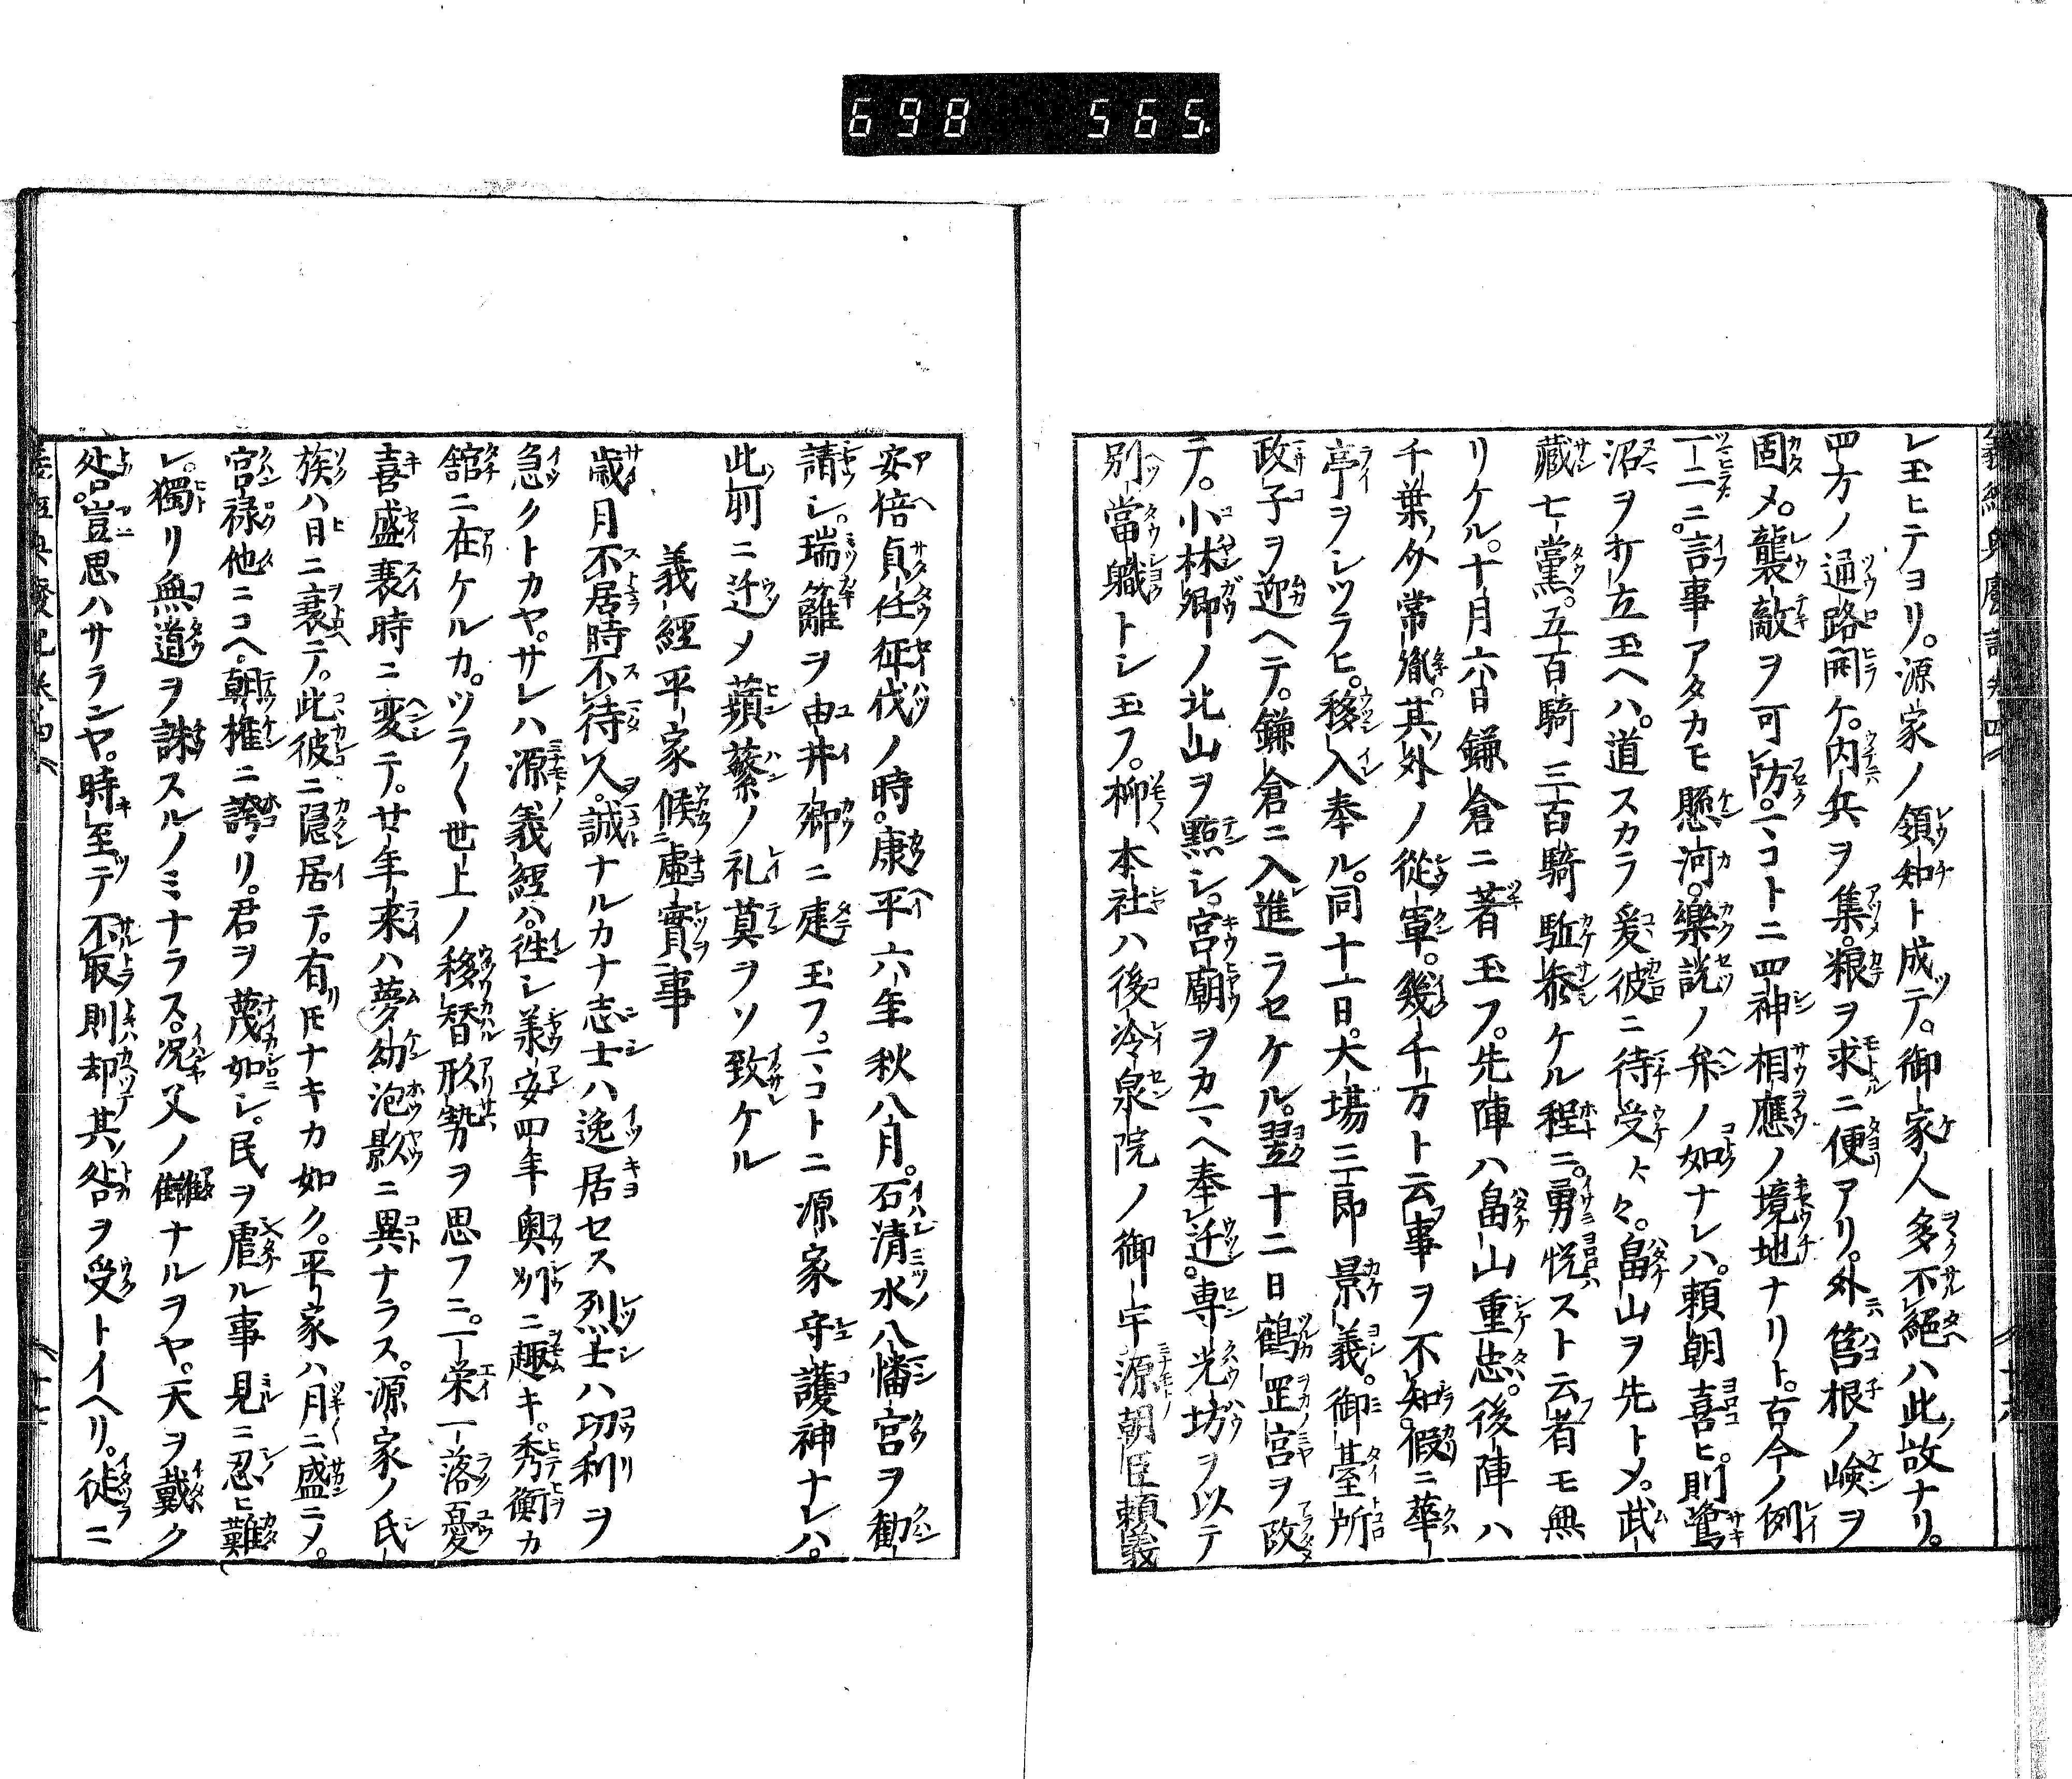 698 565
レ玉ヒテヨリ。源家ノ領知ト成テ。御家人多不絶ハ此故ナリ。
四方ノ通路開ケ。内兵ヲ集。粮ヲ求ニ便アリ。外筥根ノ嶮ヲ
固メ。襲敵ヲ可防。マコトニ四神相應ノ境地ナリト。古今ノ例
一一ニ。言事アタカモ懸河。樂説ノ弁ノ如ナレハ。頼朝喜ヒ。則鷺
沼ヲ打立玉ヘハ。道スカラ爰彼ニ待受々々。畠山ヲ先トメ。武
藏七黨。五百騎三百騎駈參ケル程ニ。勇悦スト云者モ無
リケル。十月六日鎌倉ニ著玉フ。先陣ハ畠山重忠。後陣ハ
千葉介常胤。其外ノ從軍。幾千万ト云事ヲ不知。假ニ華
亭ヲシツラヒ。移入奉ル。同十一日。大場三郎景義。御臺所
政子ヲ迎ヘテ。鎌倉ニ入進ラセケル。翌十二日鶴罡宮ヲ改
テ。小林郷ノ北山ヲ點シ。宮廟ヲカマヘ奉迁。専光坊ヲ以テ
別當職トシ玉フ。抑本社ハ後冷泉院ノ御宇源朝臣頼義
安倍貞任征伐ノ時。康平六年秋八月。石清水八幡宮ヲ勧
請シ。瑞籬ヲ由井郷ニ建玉フ。マコトニ源家守護神ナレハ。
此所ニ迁メ蘋蘩ノ礼奠ヲソ致ケル
義經平家候虚實事
歳月不居時不待人。誠ナルカナ志士ハ逸居セス烈士ハ功利ヲ
急クトカヤ。サレハ源義經ハ。徃シ承安四年奥州ニ趣キ。秀衡カ
舘ニ在ケルカ。ツラ〱世上ノ移替形勢ヲ思フニ。一栄一落憂
喜盛衰時ニ変テ。廿年来ハ夢幼泡影ニ異ナラス。源家ノ氏
族ハ日ニ衰テ。此彼ニ隠居テ。有トモナキカ如ク。平家ハ月ニ盛ニメ。
官禄他ニコヘ。朝権ニ誇リ。君ヲ蔑如シ。民ヲ虐ル事見ニ忍ヒ難
レ。獨リ無道ヲ誅スルノミナラス。况父ノ讎ナルヲヤ。天ヲ戴ク
咎。豈思ハサランヤ。時至テ不取則却其咎ヲ受トイヘリ。徒ニ